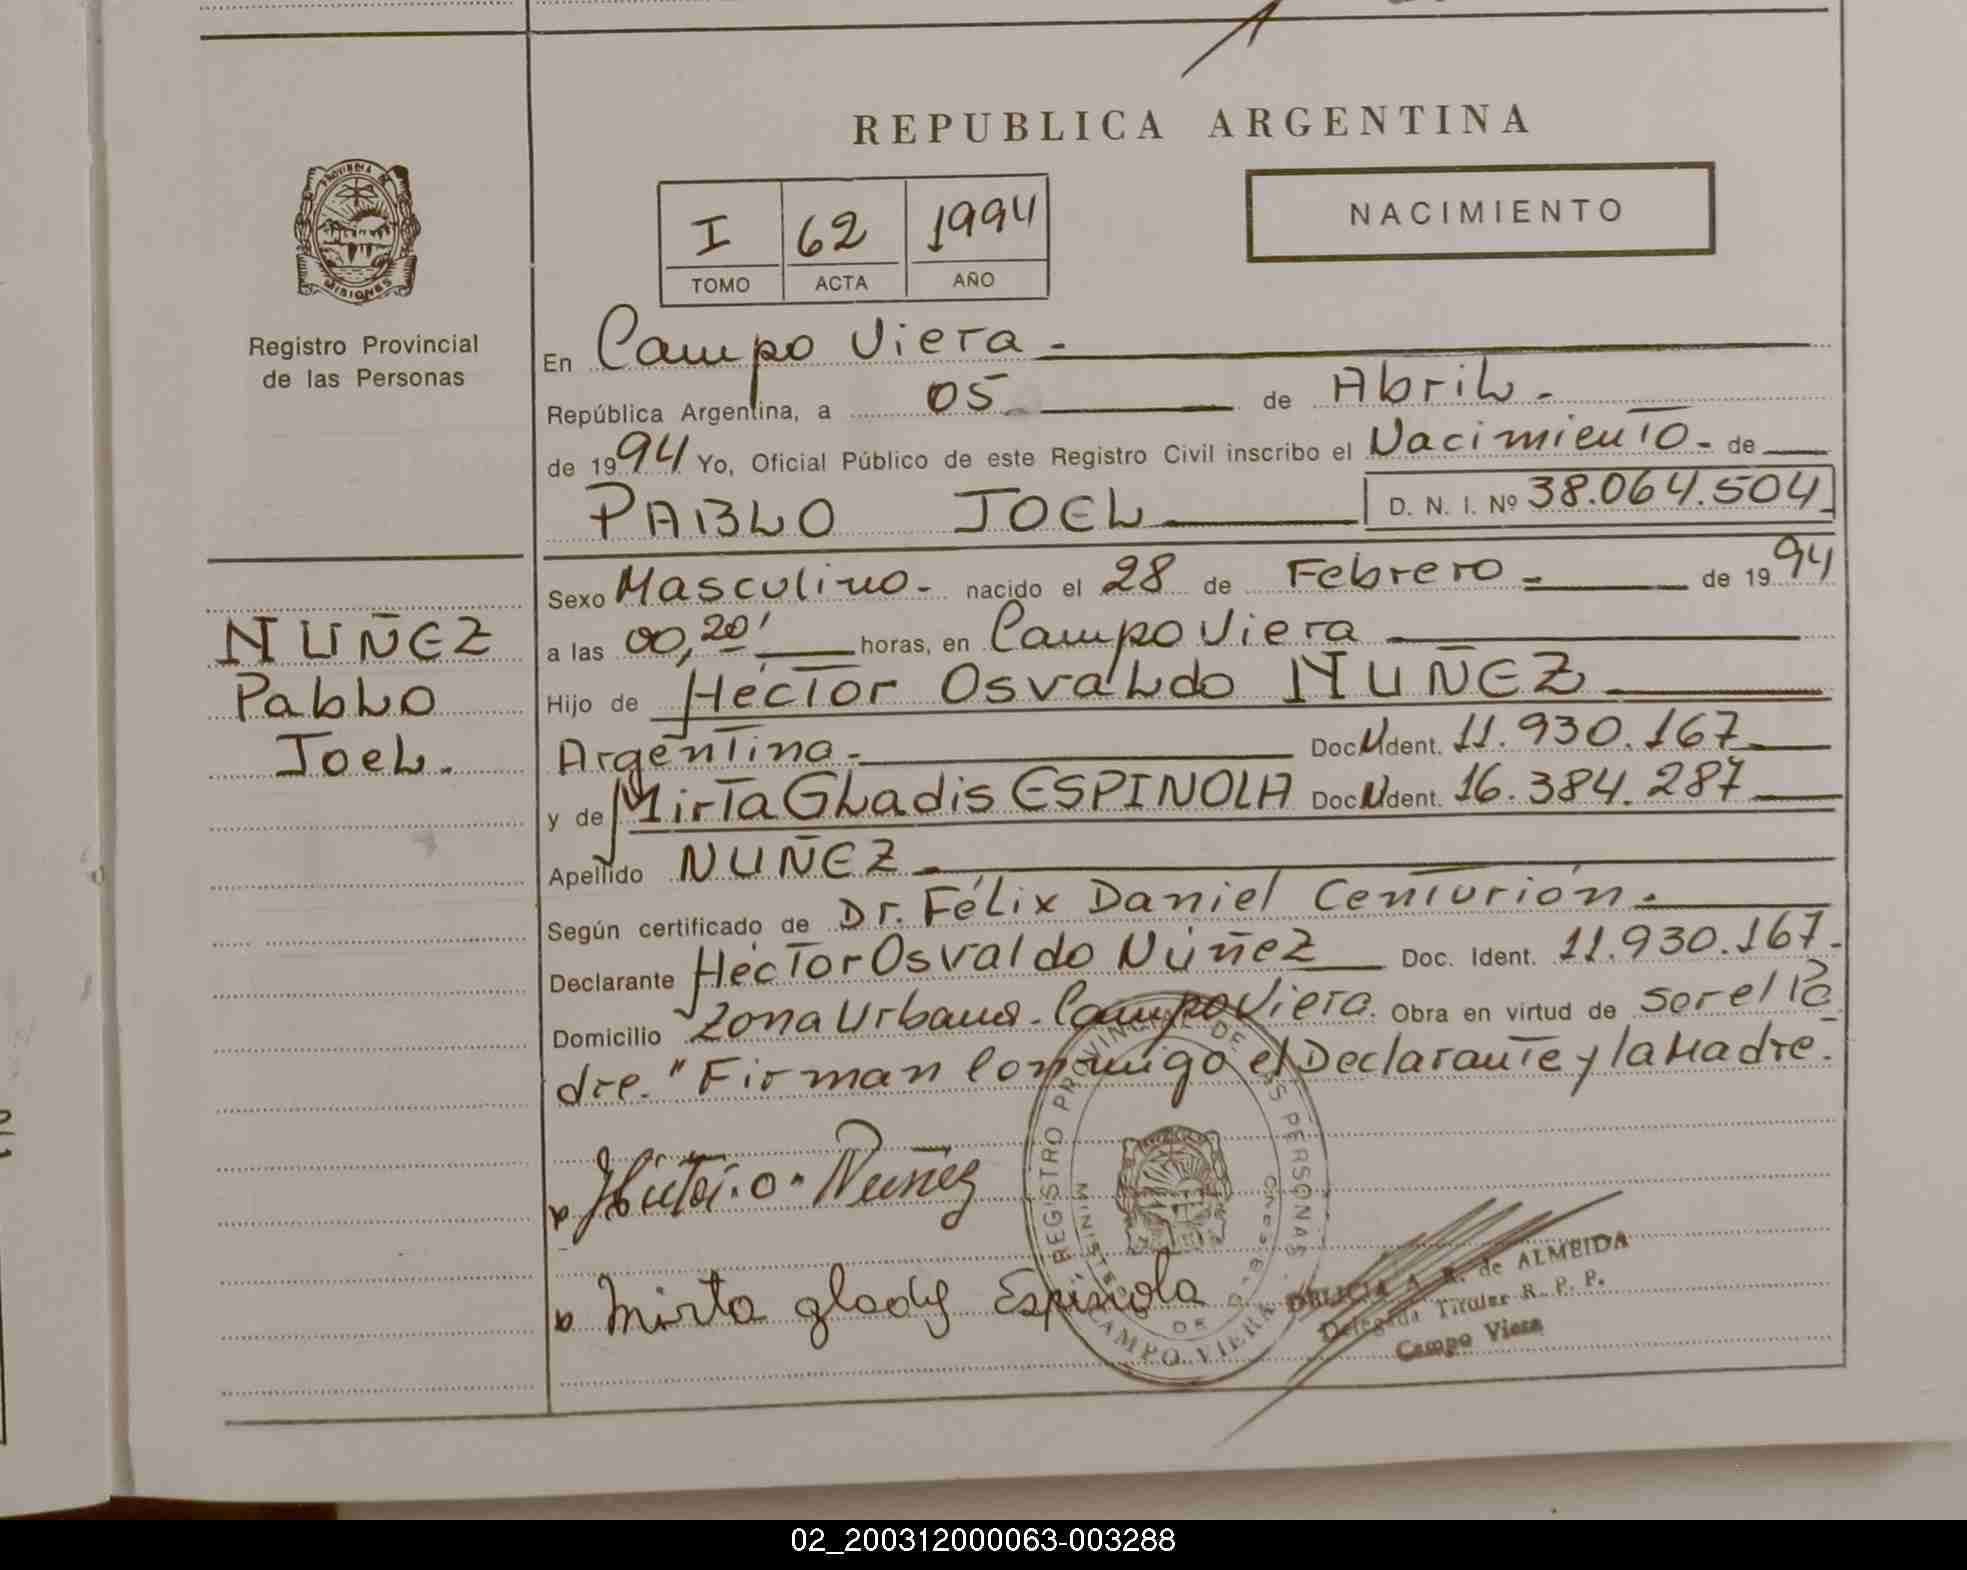 REPUBLICA ARGENTINA
NACIMIENTO
I 62 1994
TOMO ACTA AÑO
PROVINCIA DE
MISIONES
Registro Provincial
de las Personas
En Campo Viera.-
República Argentina, a 05 de Abril.-
de 1994 Yo, Oficial Público de este Registro Civil inscribo el Nacimiento.- de
PABLO JOEL D. N. I. Nº 38.064.504
Sexo Masculino.- nacido el 28 de Febrero.- de 1994
a las 00,20' horas, en Campo Viera
NUÑEZ
Pablo
Joel.
Hijo de Héctor Osvaldo NUÑEZ
Argentina.- Doc. Ident. 11.930.167
y de Mirta Gladis ESPINOLA Doc. Ident. 16.384.287
Apellido NUÑEZ.-
Según certificado de Dr. Félix Daniel Centurión.-
Declarante Héctor Osvaldo Núñez Doc. Ident. 11.930.167.-
Domicilio Zona Urbana. Campo Viera. Obra en virtud de ser el Pa
dre." Firman Conmigo el Declarante y la Madre.-
Héctor. o. Nuñez
Mirta glady Espinola
REGISTRO PROVINCIAL DE LAS PERSONAS
CAMPO VIERA
DELICIA A. R. de ALMEIDA
Delegada Titular R. P. P.
Campo Viera
02_200312000063-003288